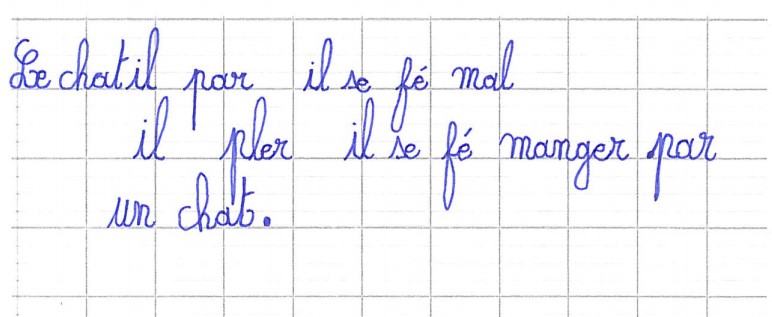 Le chat il par il se fé mal
il pler il se fé manger par
un chat.